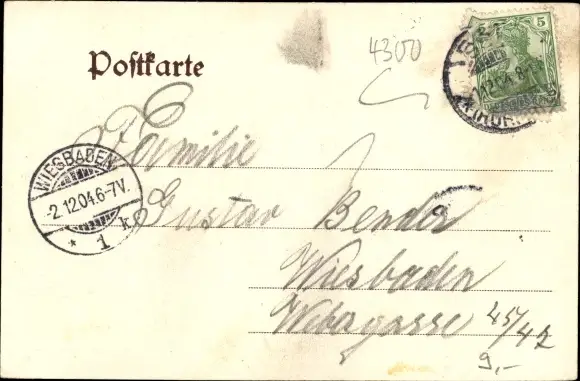 4300
5
Postkarte
1.12.04.8-
Familie
WIESBADEN
-2.12.04.6-7V.
* 1 k
Gustav Bender
Wiesbaden
Webergasse 45/47
9,-